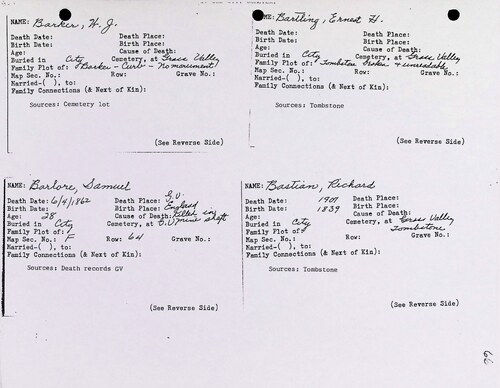 NAME: Barker, W. J.
Death Date: Death Place:
Birth Date: Birth Place:
Age: Cause of Death:
Buried in City Cemetery, at Grass Valley
Family Plot of: Barker - Curb - No monument
Map Sec. No.: Row: Grave No.:
Married-( ), to:
Family Connections (& Next of Kin):
Sources: Cemetery lot
(See Reverse Side)
NAME: Bartling, Ernest H.
Death Date: Death Place:
Birth Date: Birth Place:
Age: Cause of Death:
Buried in City Cemetery, at Grass Valley
Family Plot of: Tombstone broken & unreadable
Map Sec. No.: Row: Grave No.:
Married-( ), to:
Family Connections (& Next of Kin):
Sources: Tombstone
(See Reverse Side)
NAME: Barlore, Samuel
Death Date: 6/4/1862 Death Place: G.V.
Birth Date: Birth Place: England
Age: 28 Cause of Death: Killed in mine shaft
Buried in City Cemetery, at G.V.
Family Plot of:
Map Sec. No.: F Row: 64 Grave No.:
Married-( ), to:
Family Connections (& Next of Kin):
Sources: Death records GV
(See Reverse Side)
NAME: Bastian, Richard
Death Date: 1909 Death Place:
Birth Date: 1839 Birth Place:
Age: Cause of Death:
Buried in City Cemetery, at Grass Valley
Family Plot of: Tombstone
Map Sec. No.: Row: Grave No.:
Married-( ), to:
Family Connections (& Next of Kin):
Sources: Tombstone
(See Reverse Side)